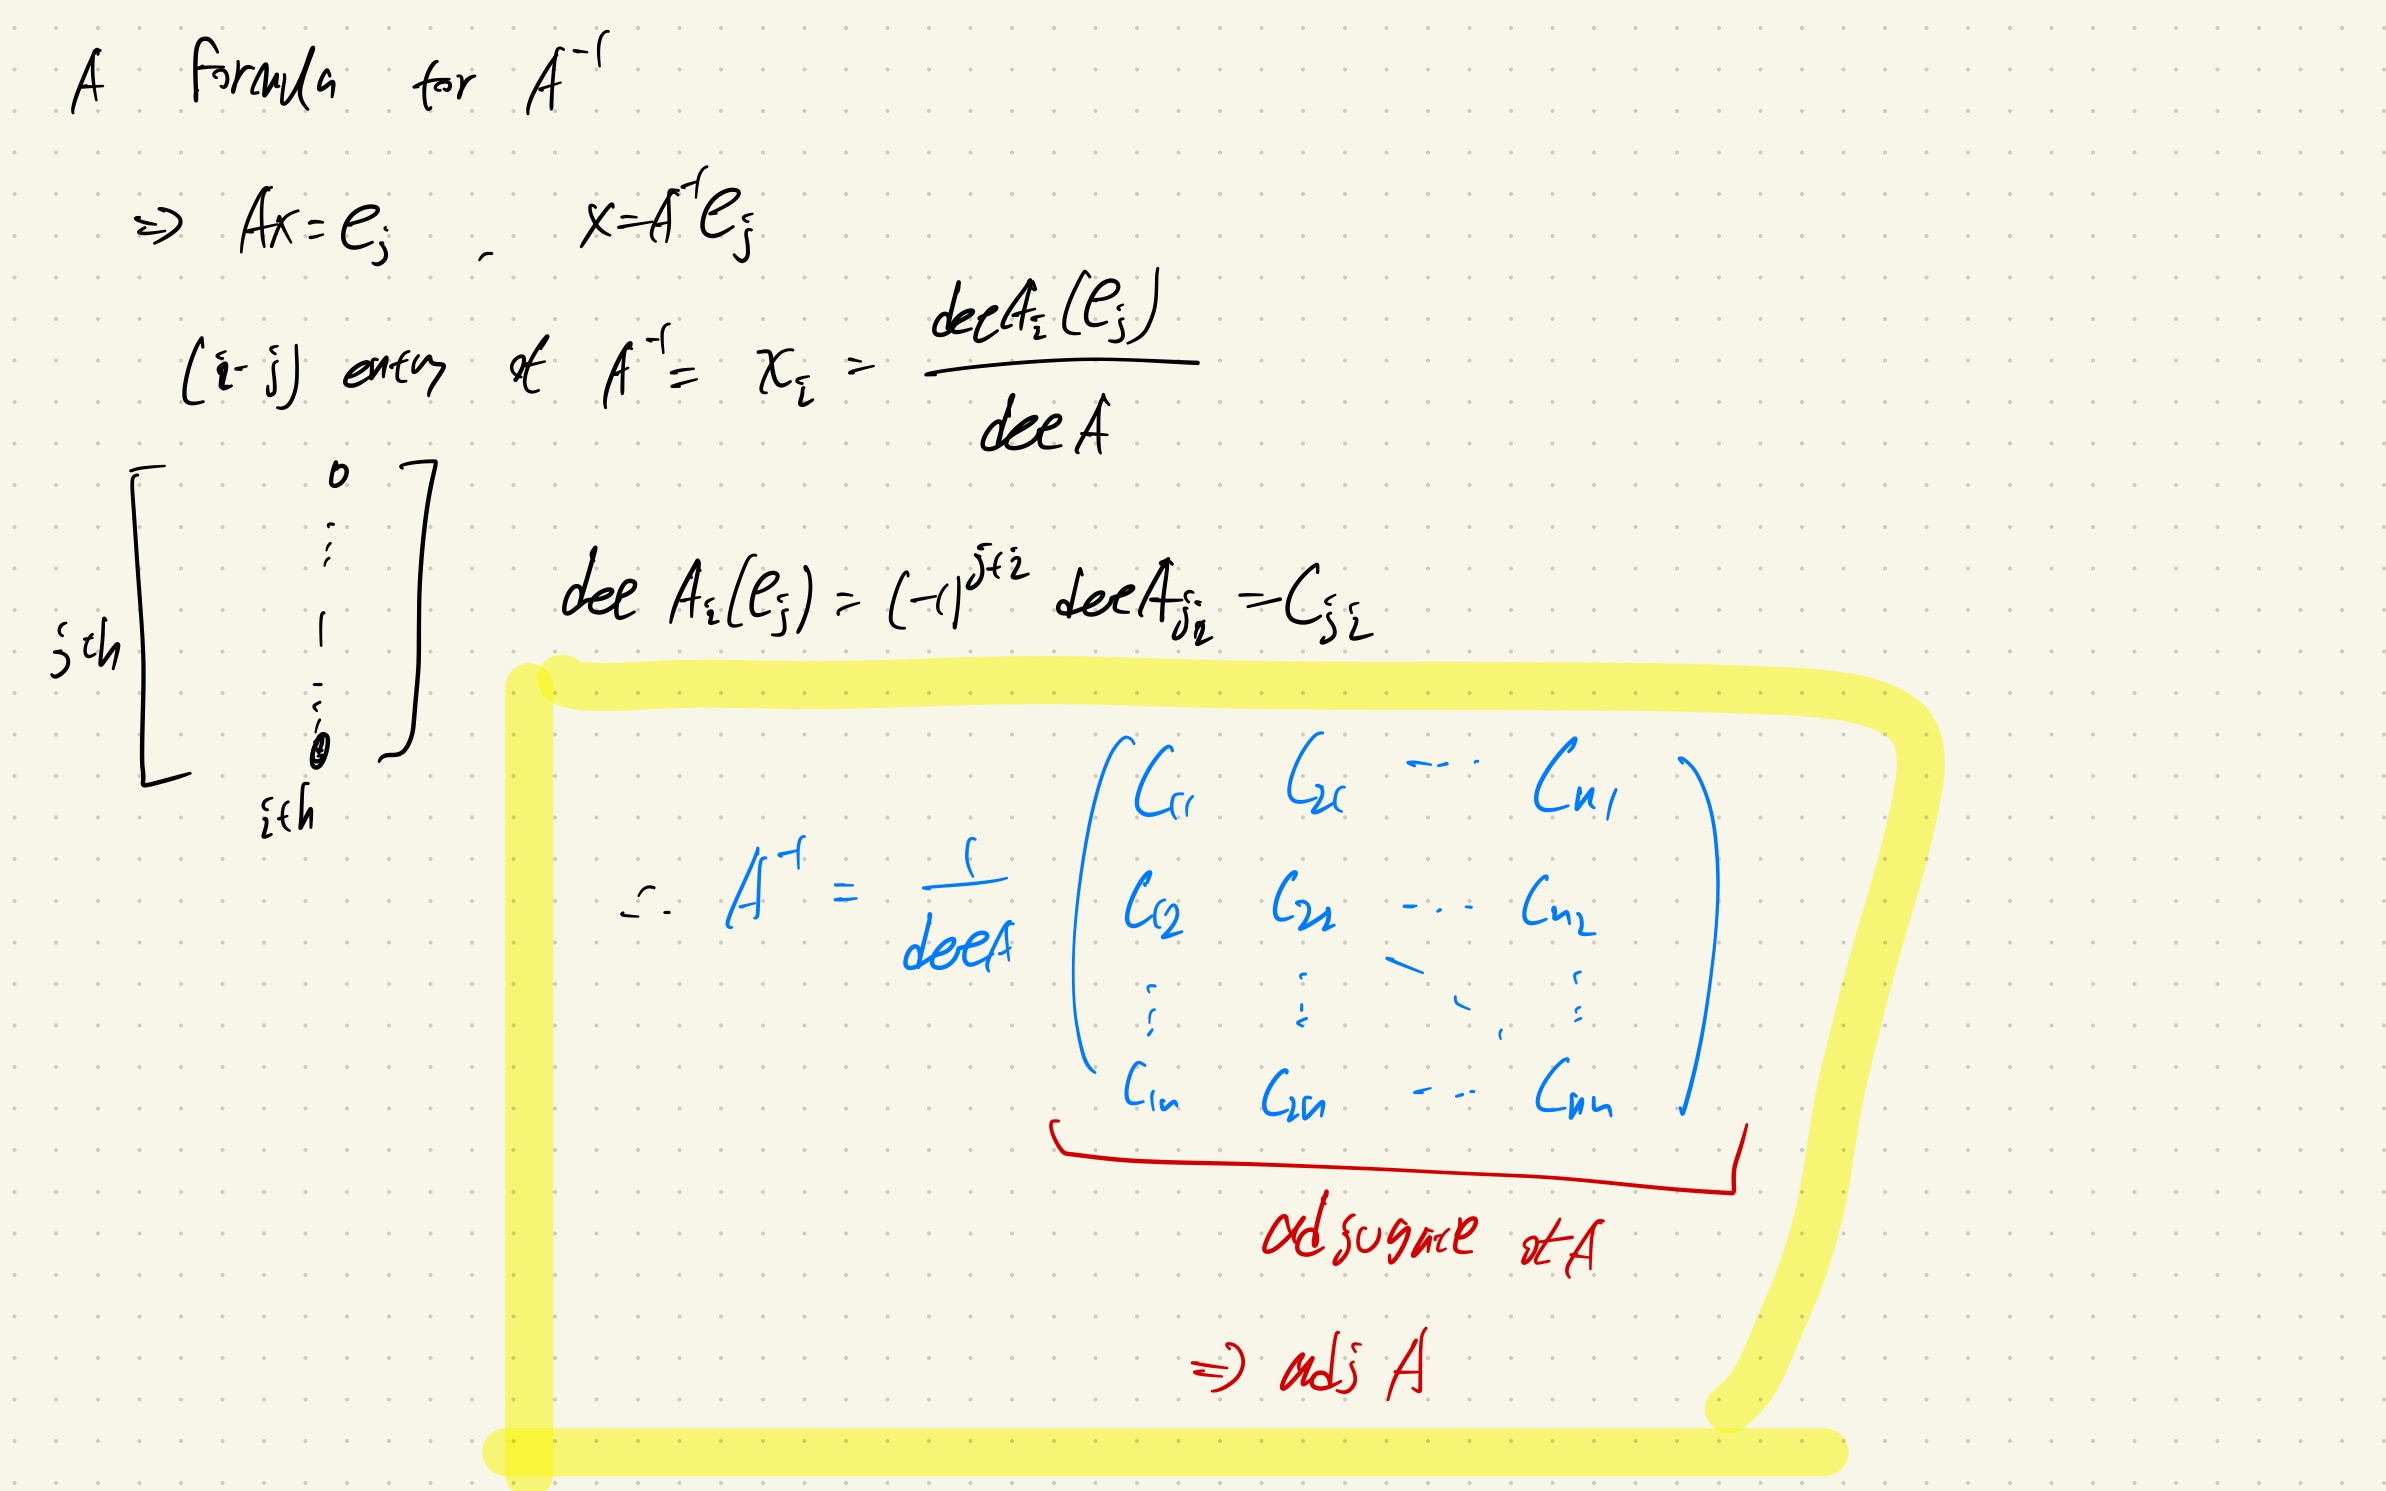 A formula for A⁻¹
⇒ Ax = e_j , x = A⁻¹e_j
(i-j) entry of A⁻¹ = x_i = det A_i(e_j) / det A
jth [ 0 ⋮ 1 ⋮ 0 ]
ith
det A_i(e_j) = (-1)^{j+i} det A_{ji} = C_{ji}
∴ A⁻¹ = 1 / det A
( C₁₁ C₂₁ ⋯ C_{n1}
C₁₂ C₂₂ ⋯ C_{n2}
⋮ ⋮ ⋱ ⋮
C_{1n} C_{2n} ⋯ C_{nn} )
adjugate of A
⇒ adj A